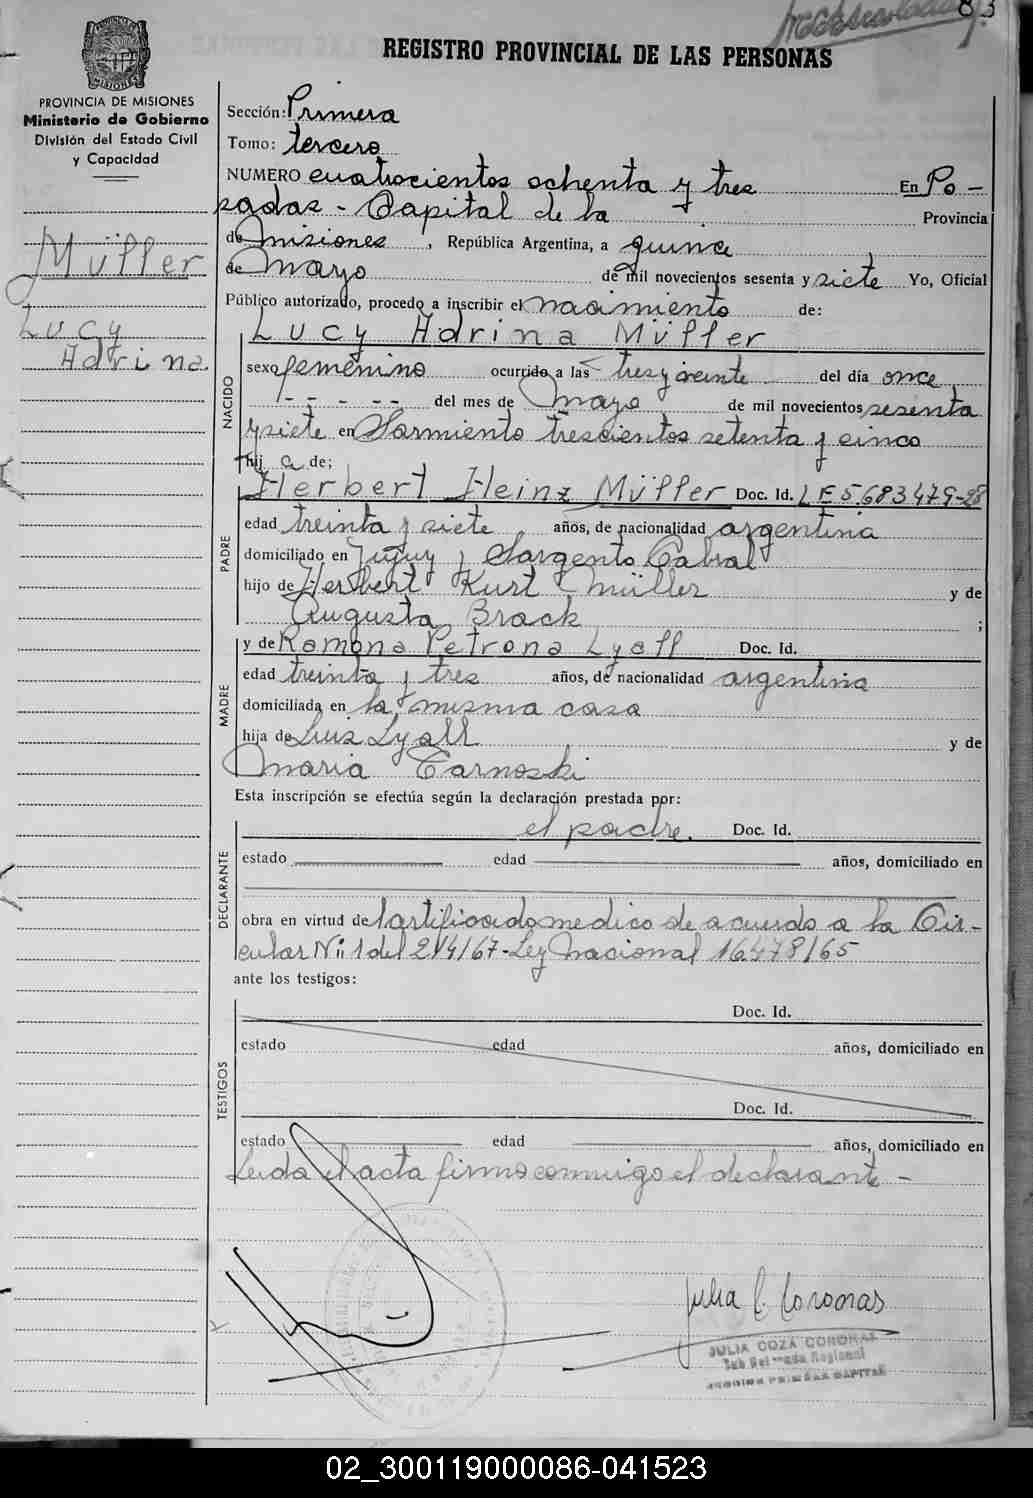 83
REGISTRO PROVINCIAL DE LAS PERSONAS
PROVINCIA DE MISIONES
Ministerio de Gobierno
División del Estado Civil
y Capacidad
Müller
Lucy
Adrina
Sección: Primera
Tomo: tercero
NUMERO cuatrocientos ochenta y tres En Po-
sadas - Capital de la Provincia
de Misiones, República Argentina, a quince
de Mayo de mil novecientos sesenta y siete Yo, Oficial
Público autorizado, procedo a inscribir el nacimiento de:
NACIDO
Lucy Adrina Müller
sexo femenino ocurrido a las tres y veinte del día once
- - - - - del mes de Mayo de mil novecientos sesenta
y siete en Sarmiento trescientos setenta y cinco
hij a de:
PADRE
Herbert Heinz Müller Doc. Id. LE 5.683.479-28
edad treinta y siete años, de nacionalidad argentina
domiciliado en Jujuy y Sargento Cabral
hijo de Herbert Kurt Müller y de
Augusta Brack ;
MADRE
y de Ramona Petrona Lyall Doc. Id.
edad treinta y tres años, de nacionalidad argentina
domiciliada en la misma casa
hija de Luis Lyall y de
Maria Tarnoski
Esta inscripción se efectúa según la declaración prestada por:
DECLARANTE
el padre. Doc. Id.
estado edad años, domiciliado en
obra en virtud de certificado medico de acuerdo a la Cir-
cular Nº 1 del 2/4/67 - Ley Nacional 16478/65
ante los testigos:
TESTIGOS
Doc. Id.
estado edad años, domiciliado en
Doc. Id.
estado edad años, domiciliado en
Leida el acta firma conmigo el declarante -
Julia C. Coronas
JULIA COZA CORONAS
Sub Delegada Regional
SECCION PRIMERA CAPITAL
02_300119000086-041523